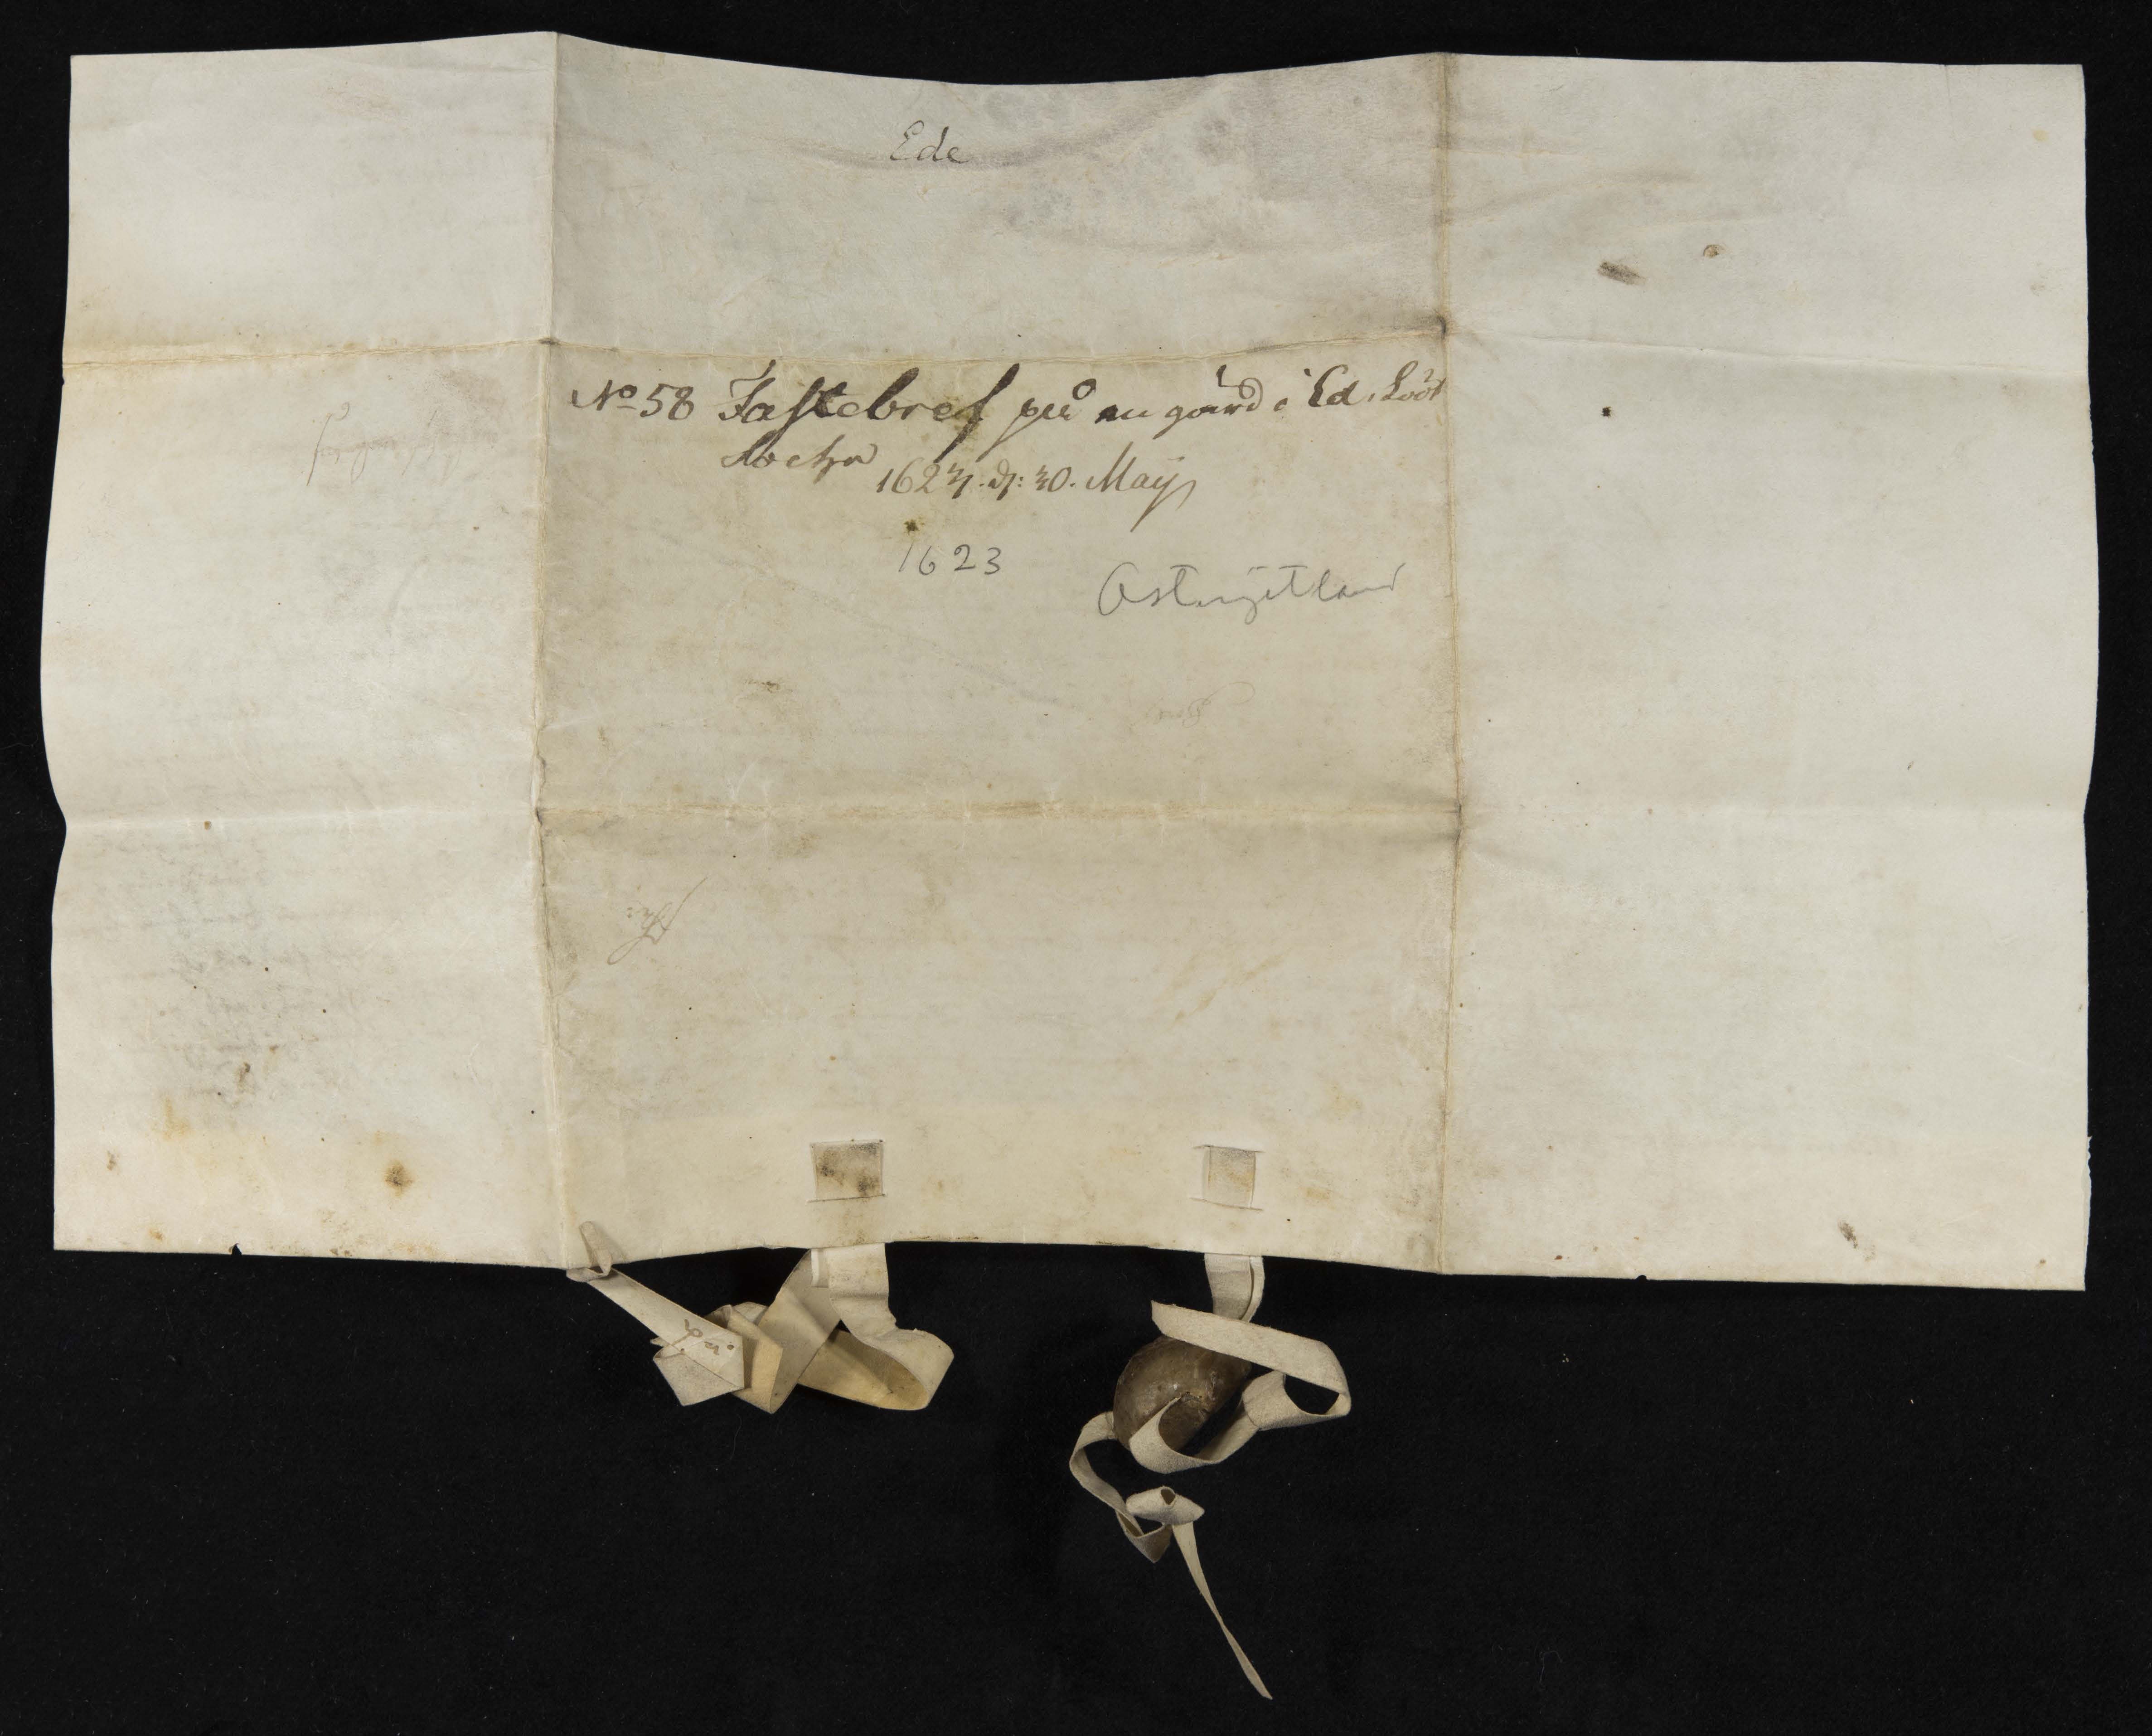 Ede
No 58 Fastebref på en gård i Ed. Lööt
Sochn
1623. d: 30. Maÿ
1623
Östergötland